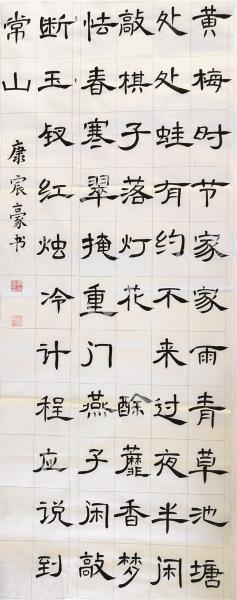 黄梅时节家家雨青草池塘
处处蛙有约不来过夜半闲
敲棋子落灯花酴蘼香梦
怯春寒翠掩重门燕子闲敲
断玉钗红烛冷计程应说到
常山
康宸豪书